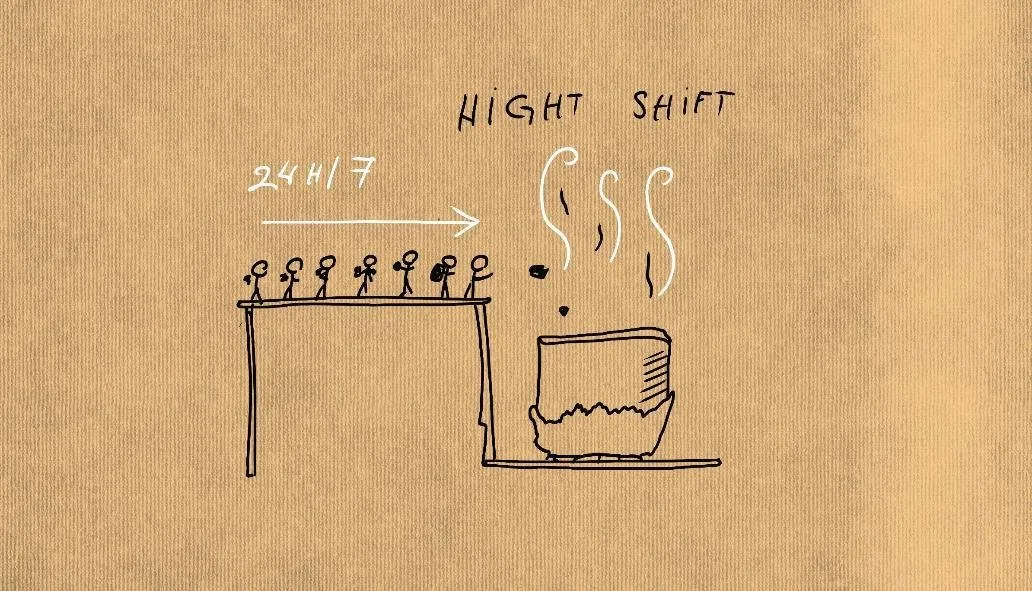 HiGHT SHiFT
24H/7